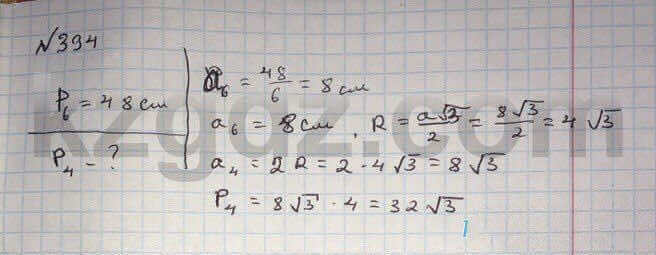 №394
P₆ = 48 см
P₄ - ?
a₆ = 48/6 = 8 см
a₆ = 8 см, R = a√3/2 = 8√3/2 = 4√3
a₄ = 2R = 2 · 4√3 = 8√3
P₄ = 8√3 · 4 = 32√3
kzgdz.com